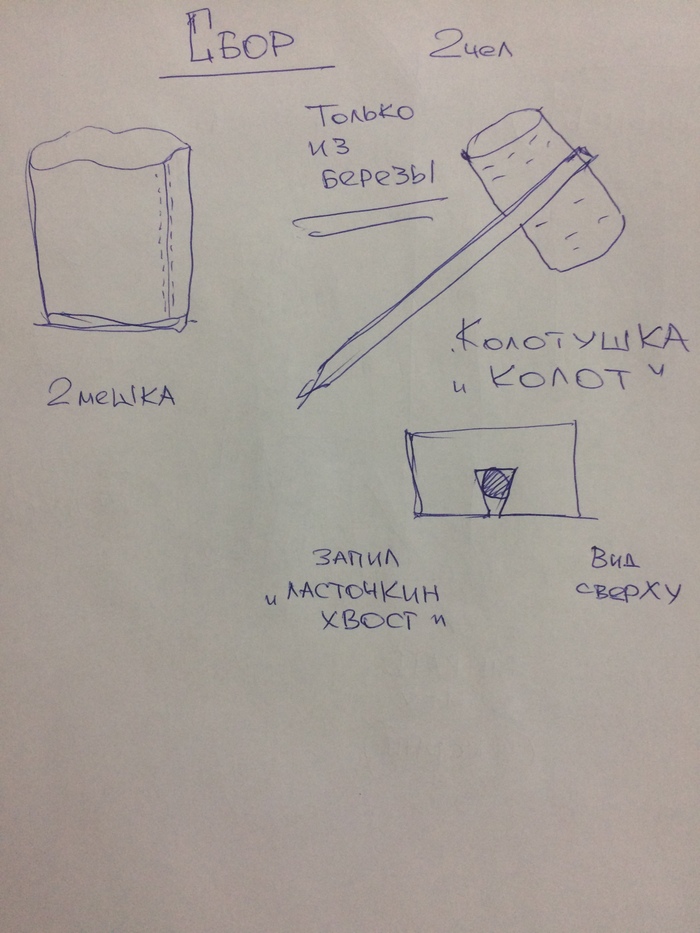 Сбор
2чел
Только
из
березы
Колотушка
"Колот"
2мешка
Запил
"Ласточкин
хвост"
Вид
сверху